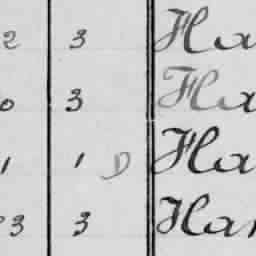 2 3 Ha
0 3 Ha
1 1 D Ha
3 3 Har